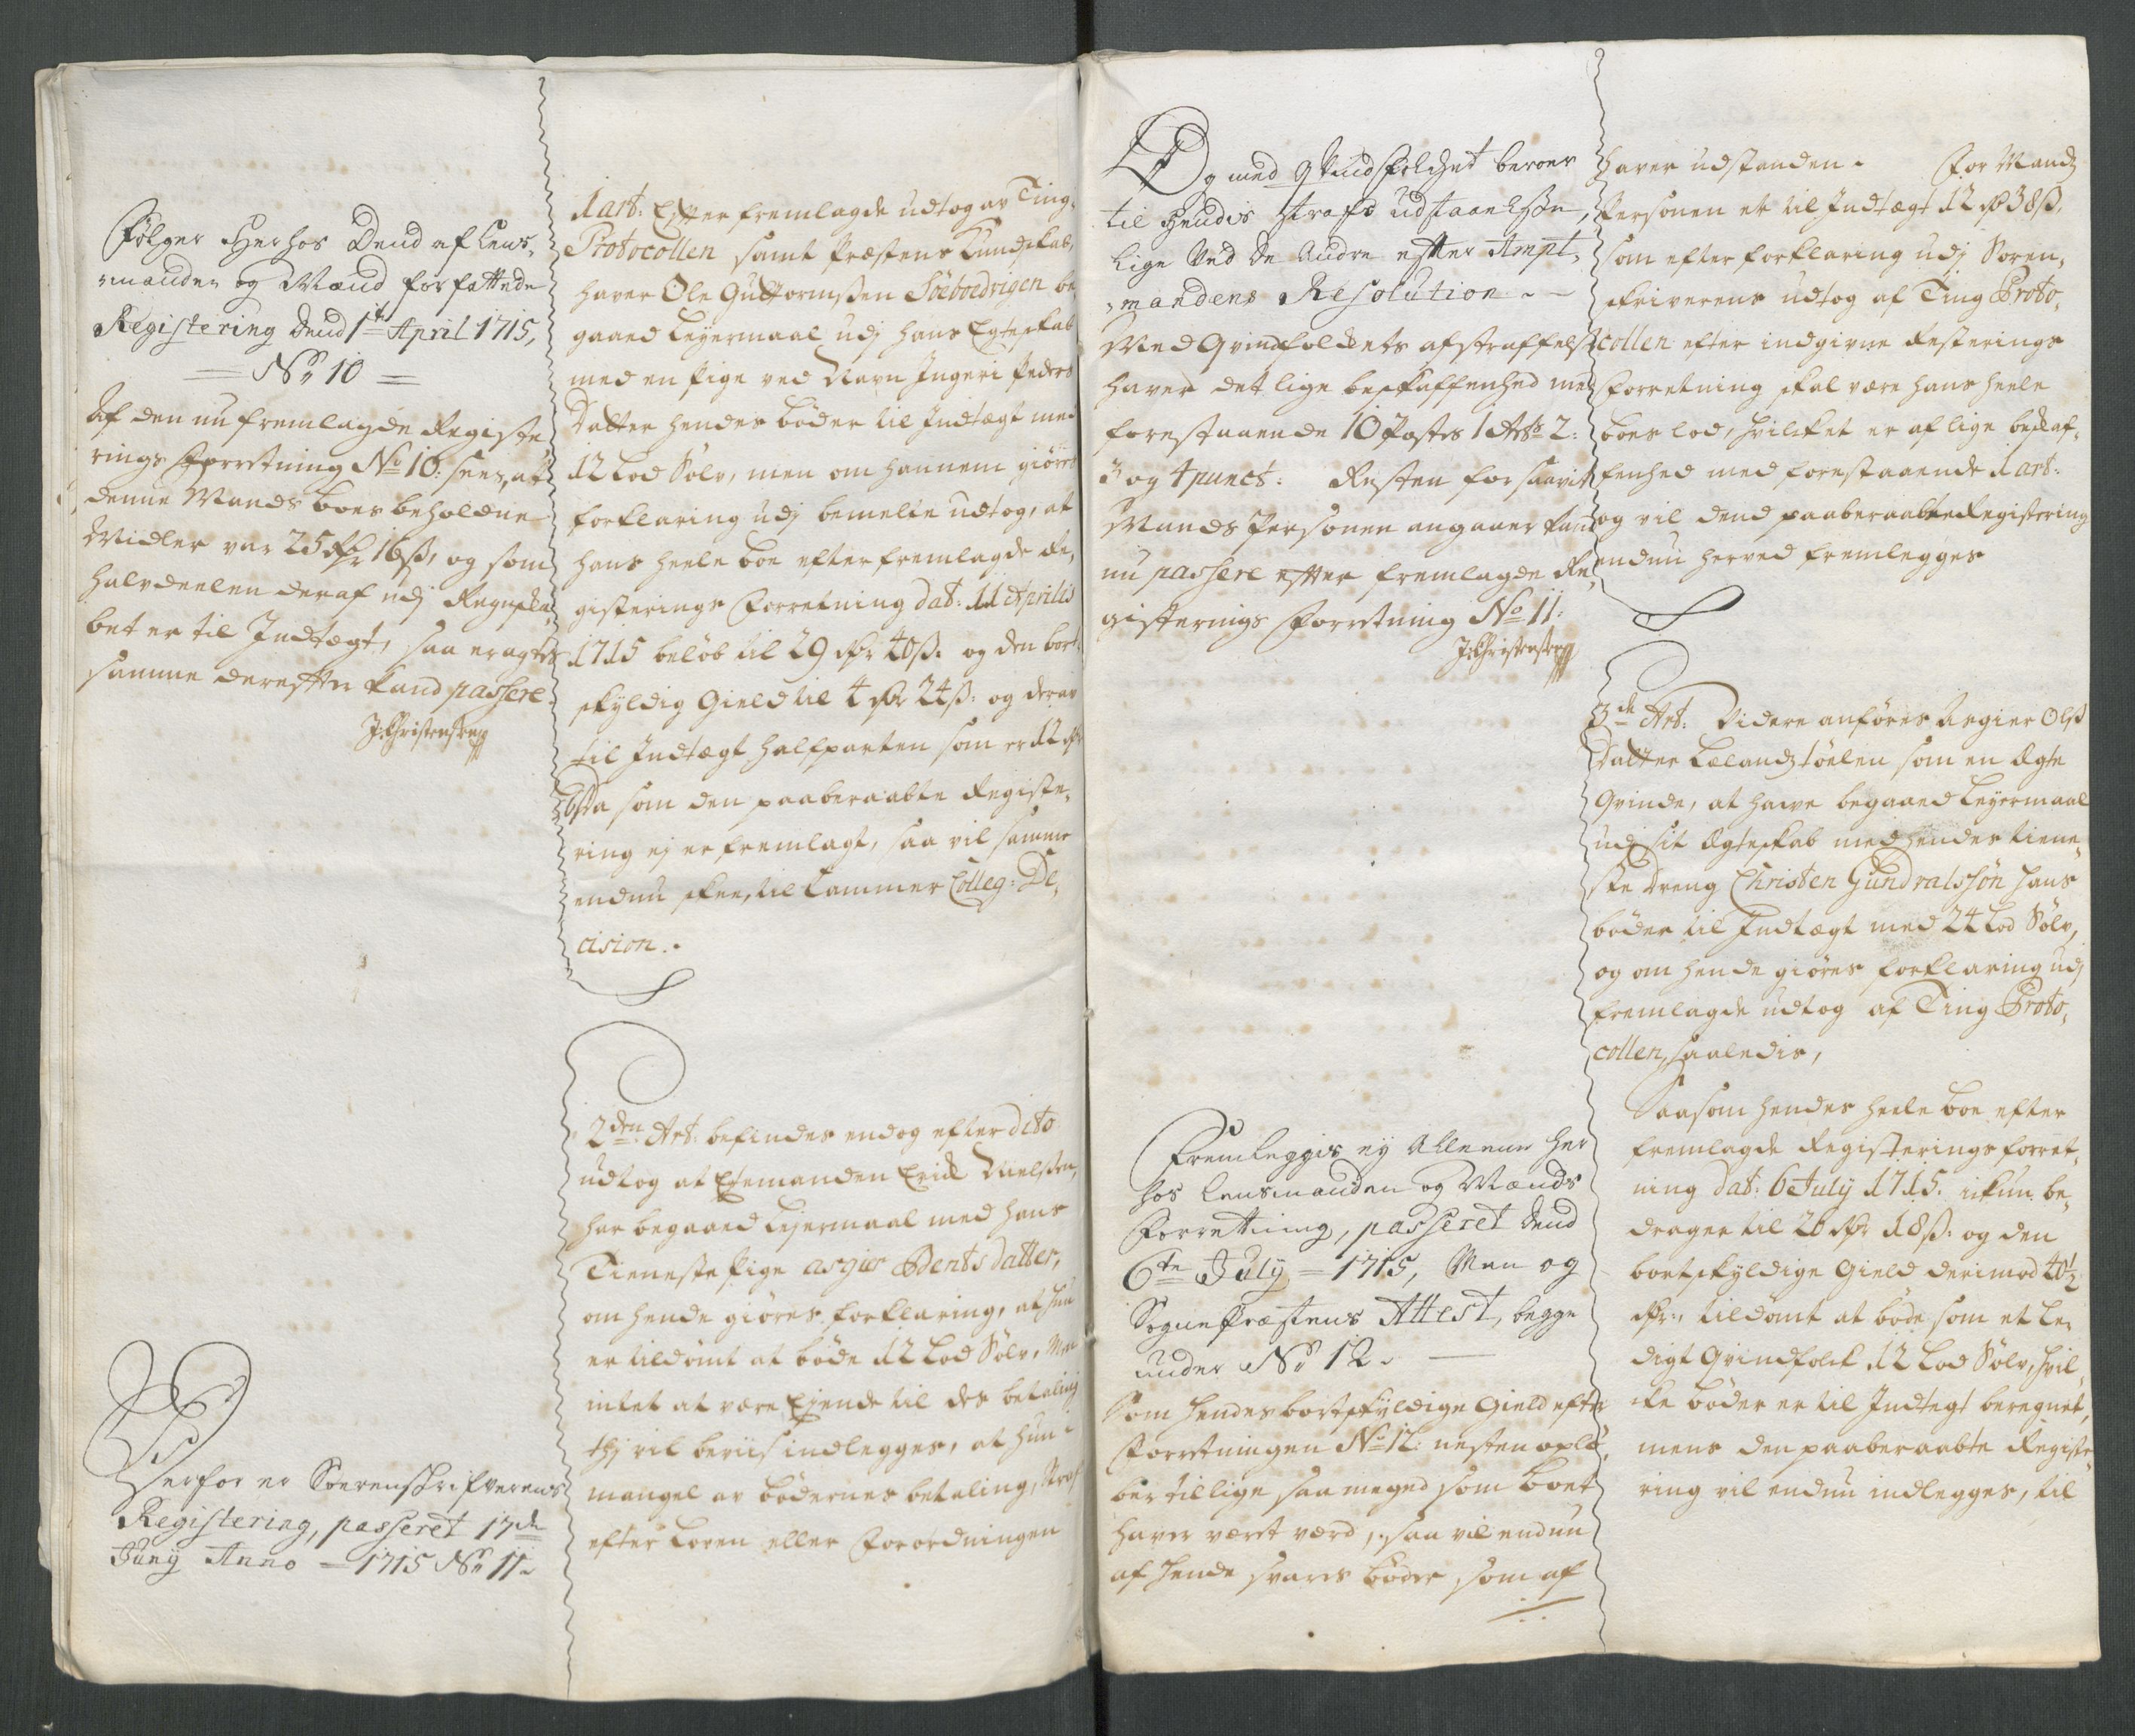 Følger Herhos Dend af Lens-
manden og Mænd forfattede
Registering Dend 1te April 1715,
No 10
Af den nu fremlagde Registe-
rings Forretning No 10: sees, at
denne Mands boes beholdne
Midler var 25 Rdr 16 ß, og som
halvdeelen deraf udj Regnska-
bet er til Indtægt, saa eragtes
samme derefter kand passere.
J: Christensen
Herfor er Sorenskrifverens
Registering, passeret 17de
Juny Anno = 1715 No 11.
1 art: Efter fremlagde udtog av Ting-
Protocollen samt Præstens Kundskab,
haver Ole Guttormssen Söeboedvigen be-
gaaed Leyermaal udj hans Egteskab
med en Pige ved Navn Ingeri Peders
Datter hendes bøder til Indtægt med
12 Lod Sølv, men om hannem giøres
forklaring udj bemelte udtog, at
hans heele boe efter fremlagde Re-
gisterings Forretning dat: 11 Aprilis
1715 beløb til 29 Rdr 40 ß. og den bort-
skyldig Gield til 4 Rdr 24 ß: og derav
til Indtægt halfparten som er 12 Rdr
56 ß Da som den paaberaabte Registe-
ring ej er fremlagt, saa vil samme
endnu skee, til Cammer Colleg: De-
cision.
2den Art: befindes endog efter dito
udtog at Ektemanden Erick Nielssen,
har begaaed Lejermaal med hans
Tieneste Pige asgier Bents datter,
om hende giøres forklaring, at hun
er tildømt at bøde 12 Lod Sølv, Men
intet at være Ejende til des betaling
thj vil beviis indlegges, at hun i
mangel av bødernes betaling, Straf
efter Loven eller Forordningen
Og med Qvindfolchet beroer
til Hendis straf udstaaelsse,
lige Ved De Andre efter Ampt-
mandens Resolution.
Med Qvindfolckets afstraffelse
haver det lige beskaffenhed med
forestaaende 10 Postes 1 Arts 2:
3 og 4 punct: Resten for saavit
Mands Personen angaaer kand
nu passere efter fremlagde Re-
gisterings Forretning No 11:
J: Christensen
Fremleggis ej Alleene her
hos Lensmanden og Mænds
Forretning, passeret Dend
6te July = 1715, Men og
Sogne Præstens Attest, begge
under No 12.
Som hendes bortskyldige Gield efter
Forretningen No 12: nesten oplø-
ber tillige saa meged som boet
haver været værd, saa vil endnu
af hende svares bøder, som af
haver udstanden. For Mands
Personen er til Indtægt 12 Rdr 38 ß.
som efter forklaring udj Soren-
skriverens udtog af Ting Proto-
collen efter indgivne Resterings
Forretning skal være hans heele
boes lod, hvilket er af lige beskaf-
fenhed med forestaaende 1 art:
og vil dend paaberaabte Registering
endnu herved fremlegges
3de Art: Videre anføres Asgier Olss
Datter Lelandstöelen som en Egte
Qvinde, at have begaaed Leyermaal
udj sit Egteskab med hendes tiene-
ste dreng Christen Gundralssøn hans
bøder til Indtægt med 24 Lod Sølv,
og om hende giøres forklaring udj
fremlagde udtog af Ting Proto-
collen, saaledis,
Saasom hendes heele boe efter
fremlagde Registerings forret-
ning dat: 6 July 1715. ickun be-
drager til 26 Rdr 18 ß. og den
bortskyldige Gield derimod 40½
Rdr., tildømt at bøde som et Le-
digt Qvindfolck 12 Lod Sølv, hvil-
cke bøder er til Indtegt beregnet,
mens den paaberaabte Registe-
ring vil endnu indlegges, til